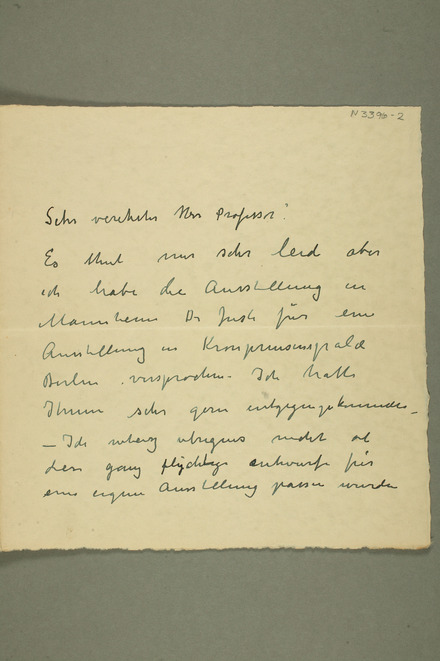 N 3396-2
Sehr verehrter Herr Professor!
Es thut mir sehr leid aber
ich habe die Ausstellung in
Mannheim Dr Justi für eine
Ausstellung im Kronprinzenpalais
Berlin versprochen. Ich hätte
Ihnen sehr gern entgegengekommen
— Ich übrigens nicht ob
diese ganz flüchtige Entwürfe für
eine eigene Ausstellung passen würden